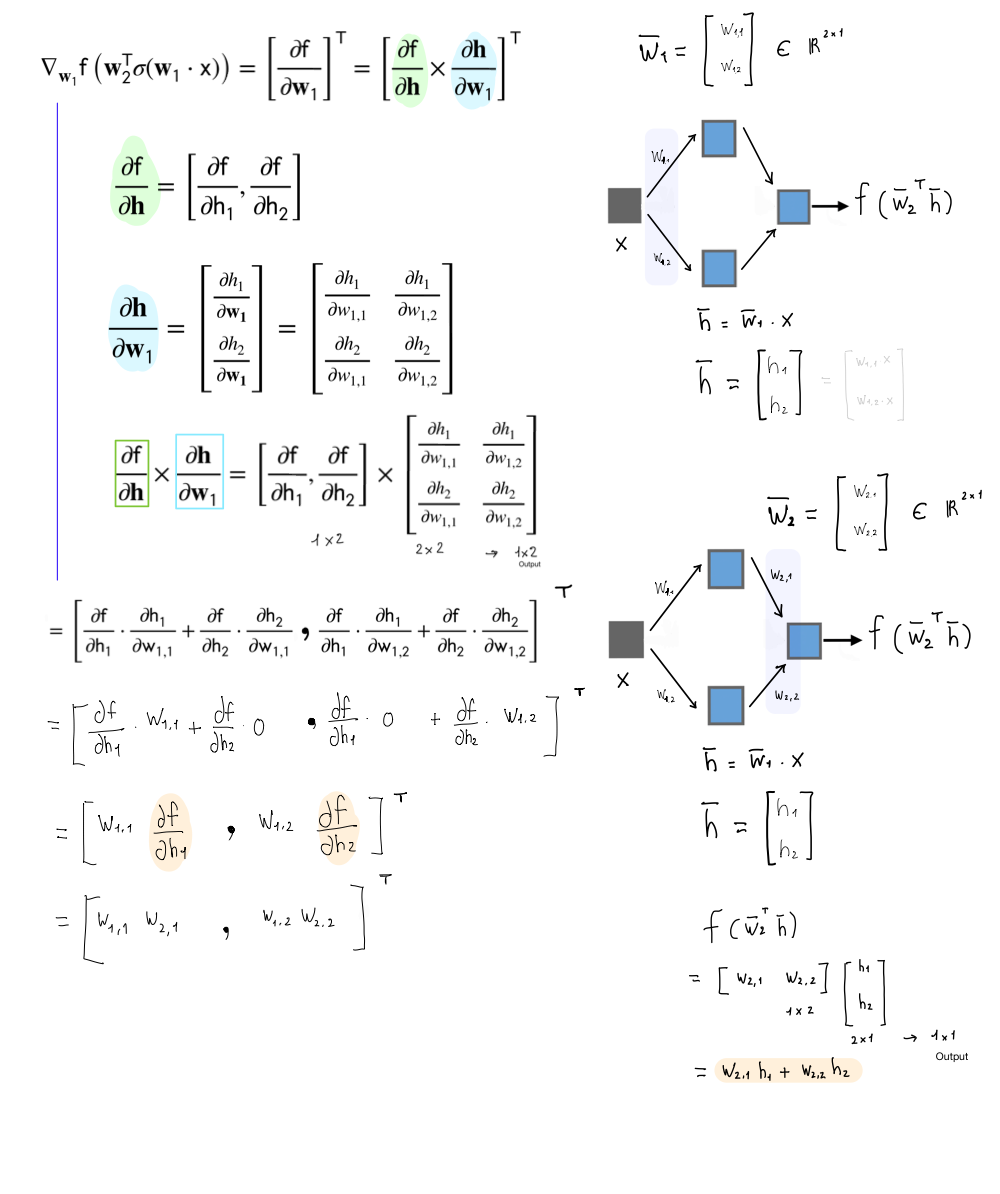 ∇_{w₁} f (w₂ᵀσ(w₁ · x)) = [∂f/∂w₁]ᵀ = [∂f/∂h × ∂h/∂w₁]ᵀ
∂f/∂h = [∂f/∂h₁, ∂f/∂h₂]
∂h/∂w₁ = [∂h₁/∂w₁ ; ∂h₂/∂w₁] = [∂h₁/∂w₁,₁ ∂h₁/∂w₁,₂ ; ∂h₂/∂w₁,₁ ∂h₂/∂w₁,₂]
∂f/∂h × ∂h/∂w₁ = [∂f/∂h₁, ∂f/∂h₂] × [∂h₁/∂w₁,₁ ∂h₁/∂w₁,₂ ; ∂h₂/∂w₁,₁ ∂h₂/∂w₁,₂]
1×2 2×2 → 1×2
Output
= [∂f/∂h₁ · ∂h₁/∂w₁,₁ + ∂f/∂h₂ · ∂h₂/∂w₁,₁ , ∂f/∂h₁ · ∂h₁/∂w₁,₂ + ∂f/∂h₂ · ∂h₂/∂w₁,₂]ᵀ
= [∂f/∂h₁ · w₁,₁ + ∂f/∂h₂ · 0 , ∂f/∂h₁ · 0 + ∂f/∂h₂ · w₁,₂]ᵀ
= [w₁,₁ ∂f/∂h₁ , w₁,₂ ∂f/∂h₂]ᵀ
= [w₁,₁ w₂,₁ , w₁,₂ w₂,₂]ᵀ
w̄₁ = [w₁,₁ ; w₁,₂] ∈ ℝ²ˣ¹
w₁,₁
x → f (w̄₂ᵀ h̄)
w₁,₂
h̄ = w̄₁ · x
h̄ = [h₁ ; h₂] = [w₁,₁ x ; w₁,₂ · x]
w̄₂ = [w₂,₁ ; w₂,₂] ∈ ℝ²ˣ¹
w₁,₁ w₂,₁
x → f (w̄₂ᵀ h̄)
w₁,₂ w₂,₂
h̄ = w̄₁ · x
h̄ = [h₁ ; h₂]
f (w̄₂ᵀ h̄)
= [w₂,₁ w₂,₂] [h₁ ; h₂]
1×2 2×1 → 1×1
Output
= w₂,₁ h₁ + w₂,₂ h₂